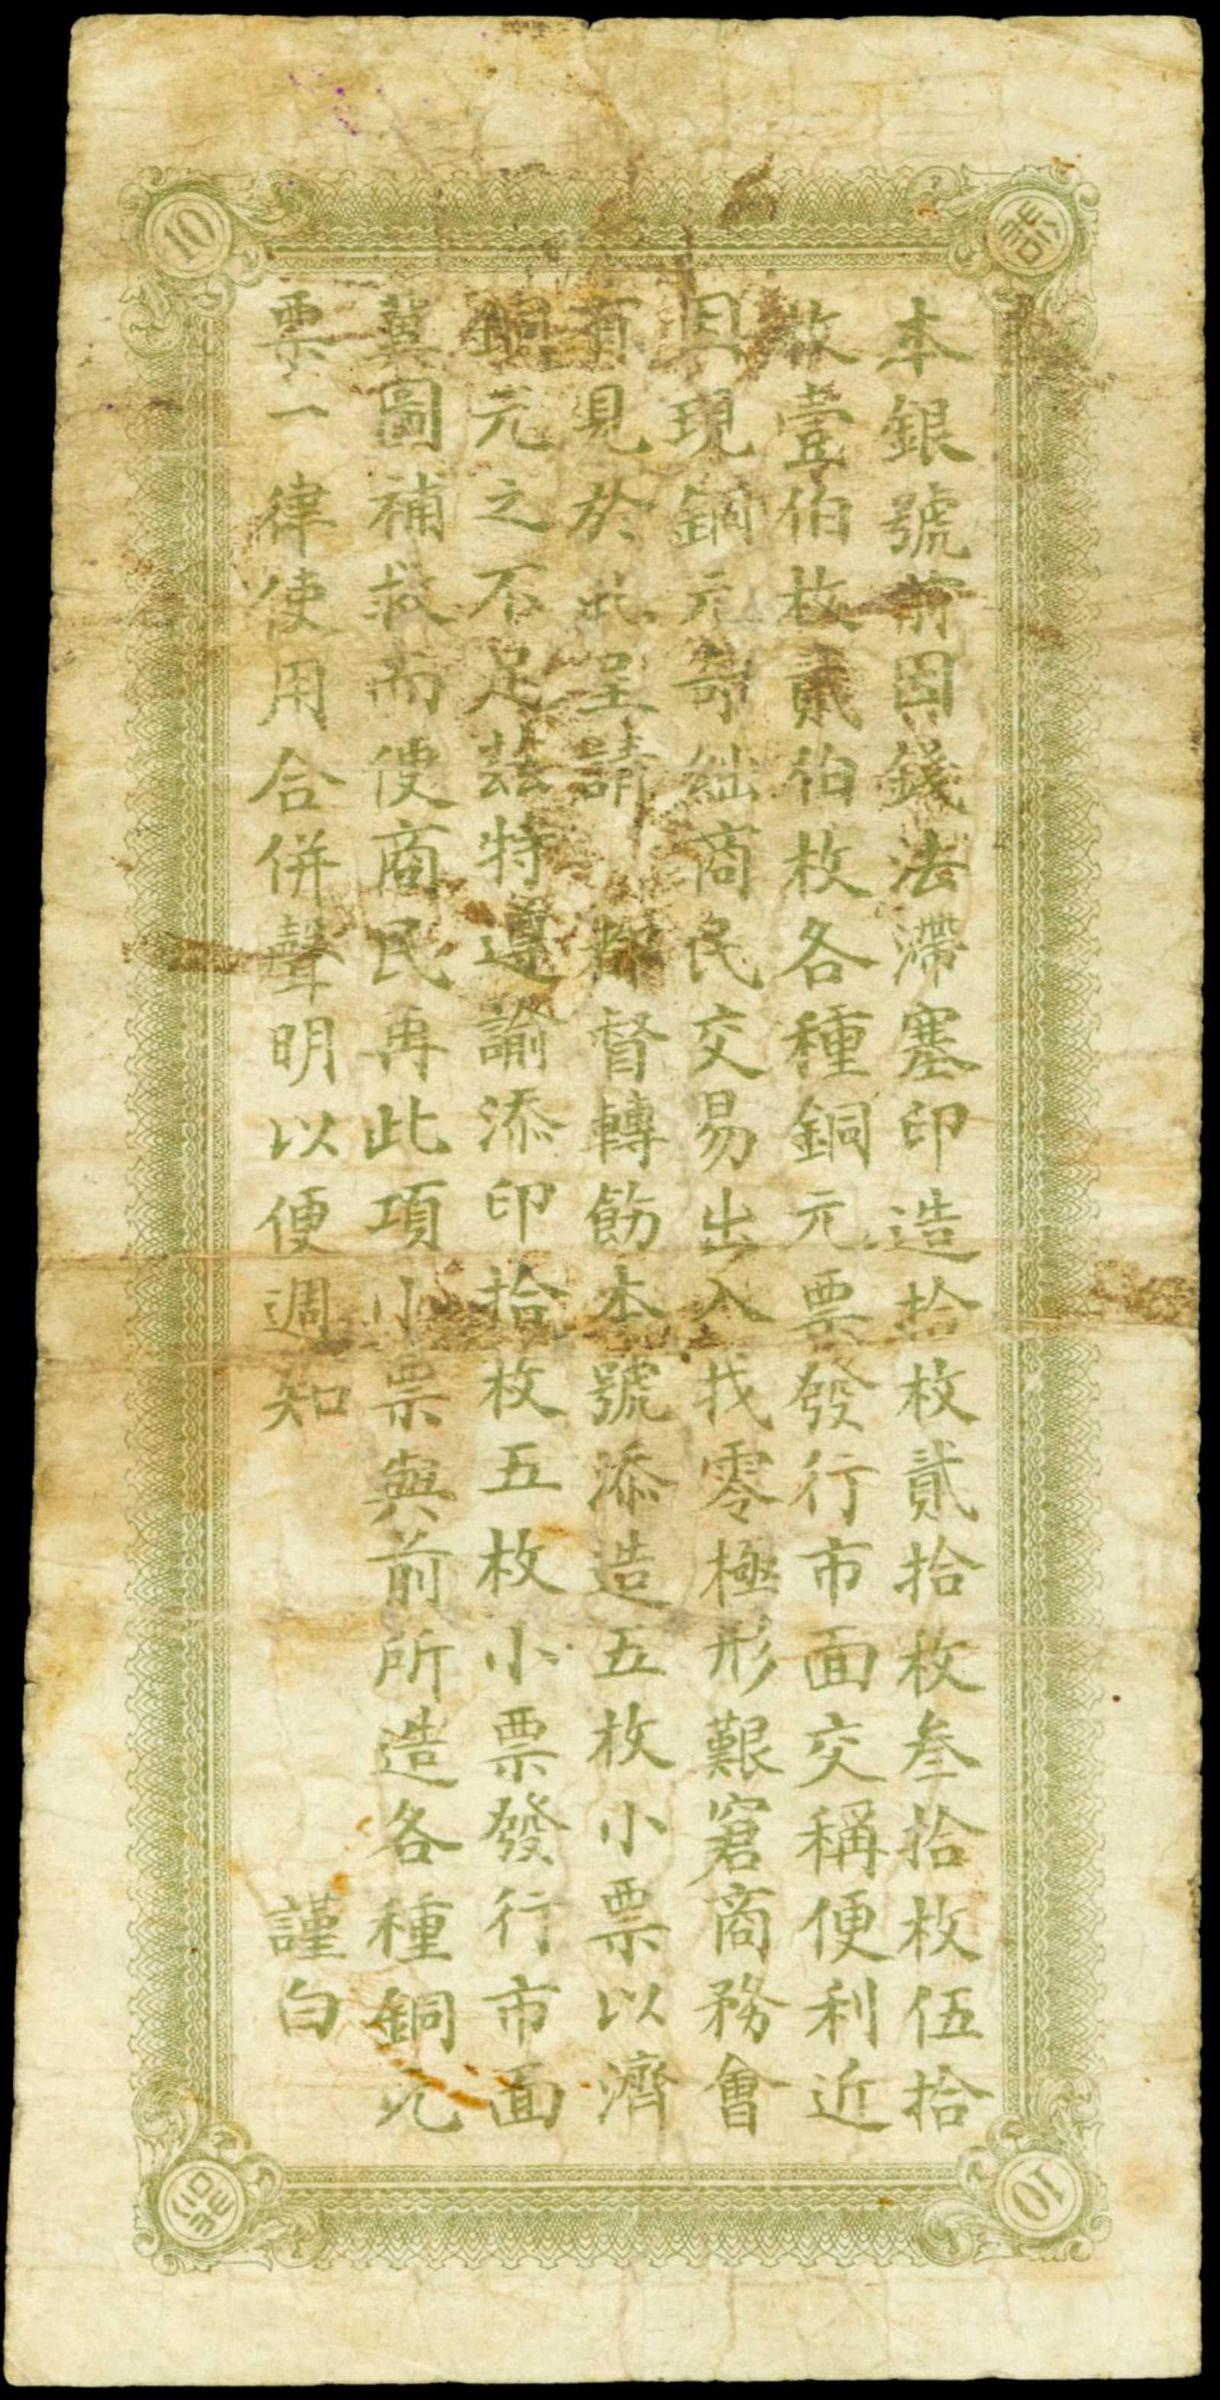 本銀號前因錢法滯塞印造拾枚貳拾枚叁拾枚伍拾
枚壹伯枚貳伯枚各種銅元票發行市面交稱便利近
因現銅元奇絀商民交易出入找零極形艱窘商務會
有見於此呈請 都督轉飭本號添造五枚小票以濟
銅元之不足茲特遵諭添印拾枚五枚小票發行市面
冀圖補救而便商民再此項小票與前所造各種銅元
票一律使用合併聲明以便週知 謹白
10
10